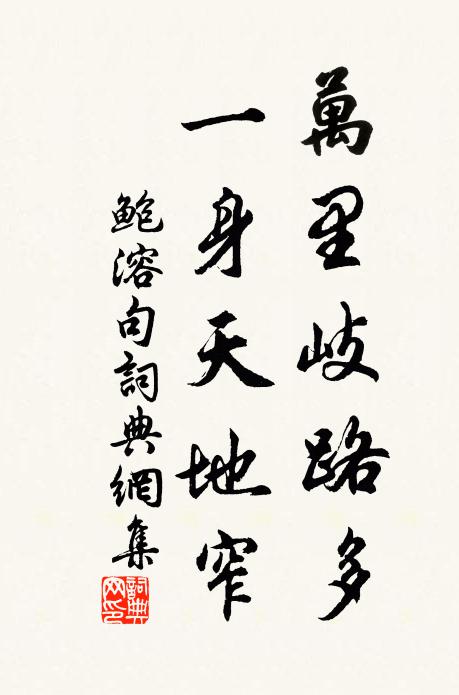 萬里岐路多
一身天地窄
鲍溶句詞典網集
詞典
网印